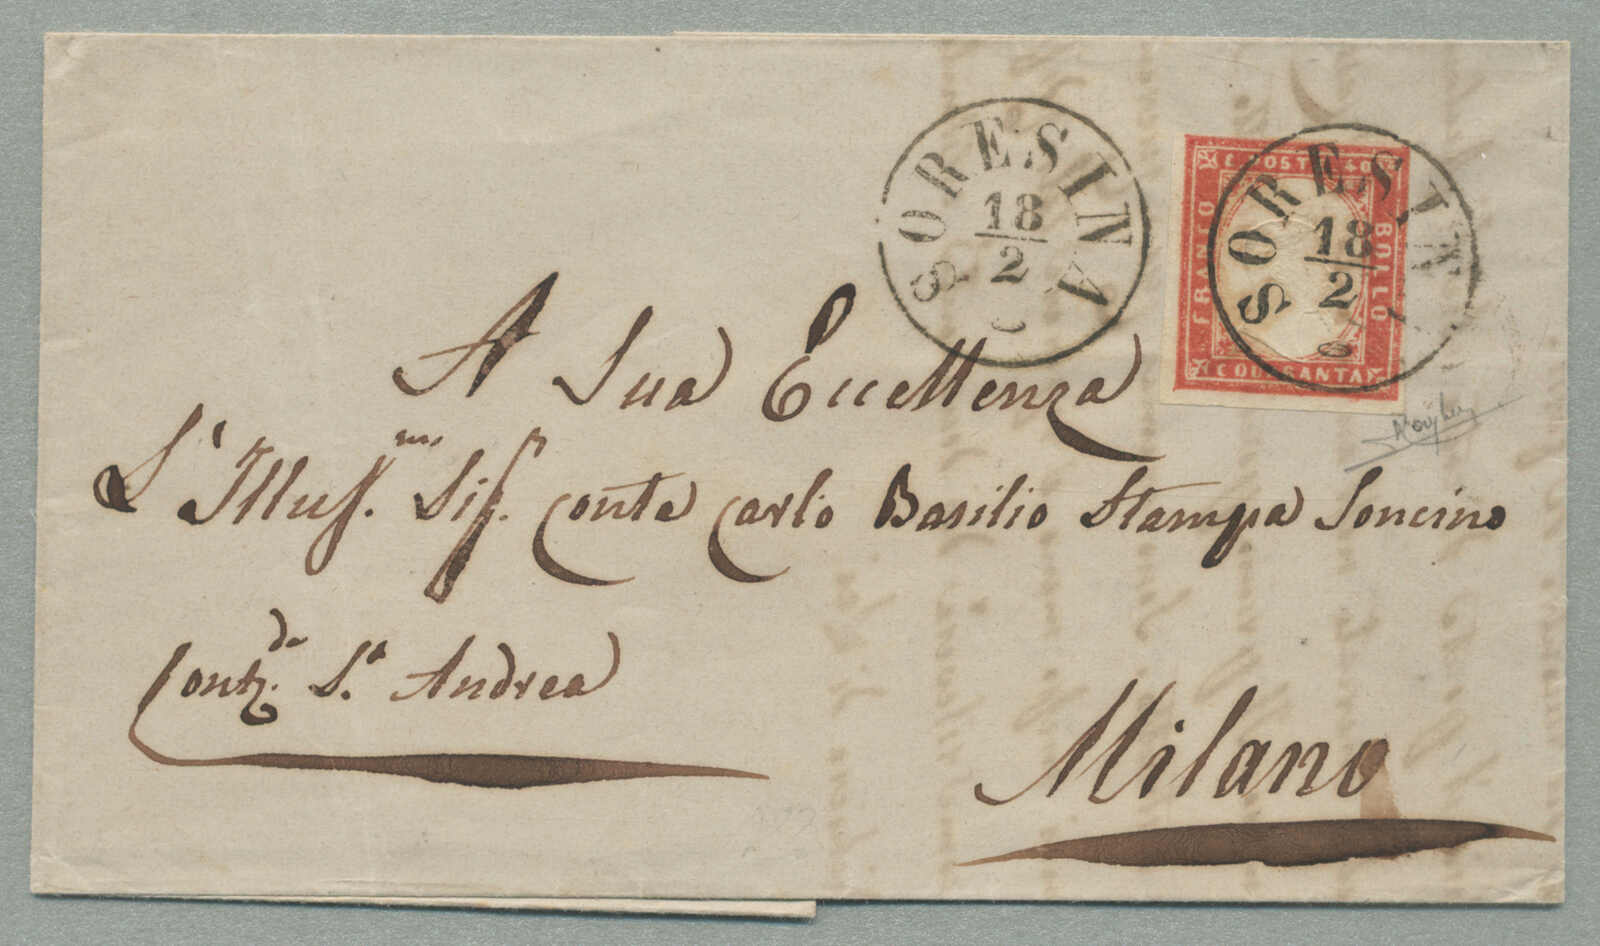 SORESINA
18
2
C. POSTE 40
FRANCO
BOLLO
C. QUARANTA
SORESINA
18
2
A Sua Eccellenza
L'Illus.mo Sig. Conte Carlo Basilio Stampa Soncino
Contr.da S.t Andrea
Milano